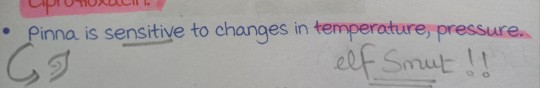 Ciprofloxacin.
• Pinna is sensitive to changes in temperature, pressure.
elf Smut !!